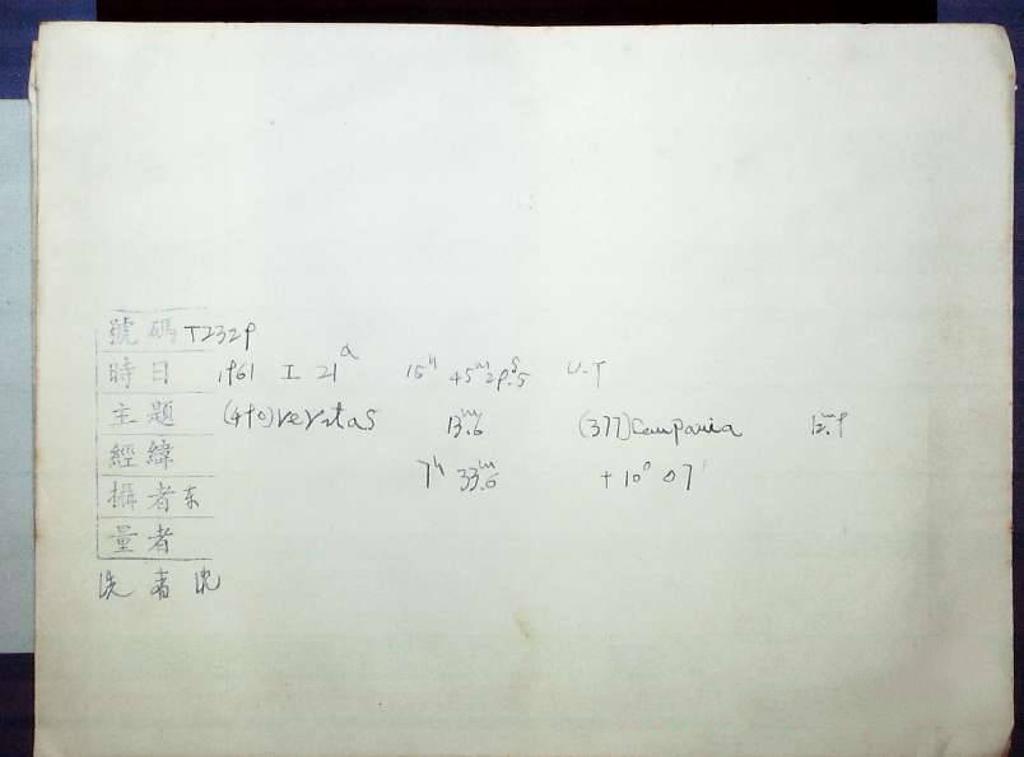 號碼 T2329
時日 1961 I 21ᵈ 15ʰ 45ᵐ 29ˢ.5 U.T
主題 (490) Veritas 13ᵐ.6 (377) Campania 12ᵐ.9
經緯 7ʰ 33ᵐ.6 +10° 07′
攝者 东
量者
洗者 沈